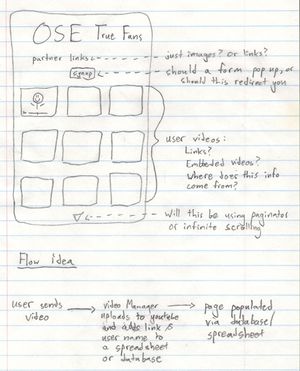 OSE True Fans
partner links
just images? or links?
signup
should a form pop up, or
should this redirect you
user videos:
Links?
Embedded videos?
Where does this info
come from?
Will this be using paginator
or infinite scrolling
Flow idea
user sends
video
video Manager
uploads to youtube
and adds link &
user name to
a spreadsheet
or database
page populated
via database/
spreadsheet